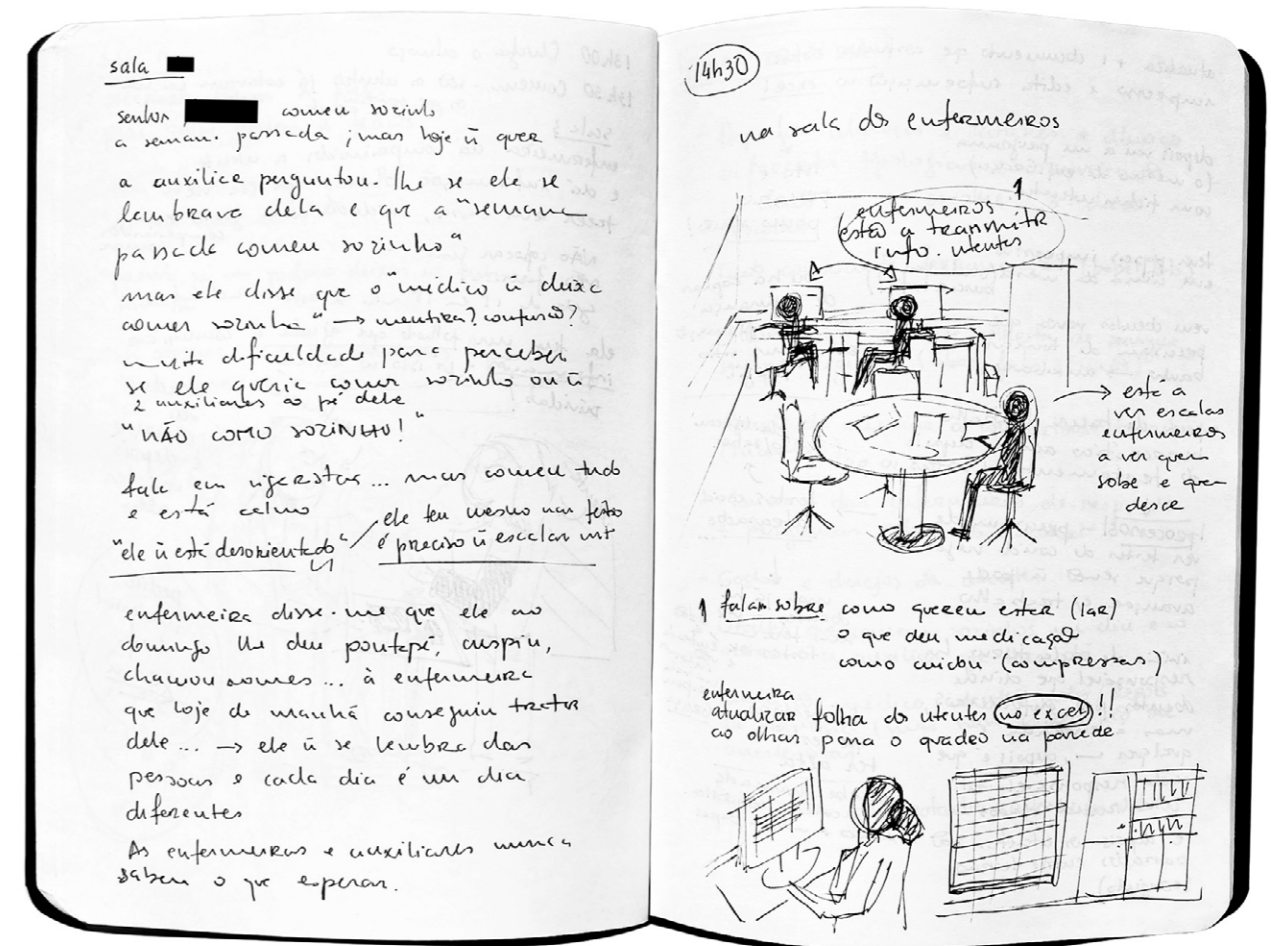 sala
senhor comeu sozinho
a seman. passada ; mas hoje ñ quer
a auxiliar perguntou-lhe se ele se
lembrava dela e que a "semana
passada comeu sozinho"
mas ele disse que o médico ñ deixa
comer sozinho" → mentira? confusão?
muita dificuldade para perceber
se ele queria comer sozinho ou ñ
2 auxiliares ao pé dele
"NÃO COMO SOZINHO!"
fala em cigarros... mas comeu tudo
e está calmo
ele tem mesmo mau feitio
"ele ñ está desorientado"
é preciso ñ escalar
enfermeira disse-me que ele ao
domingo lhe deu pontapé, cuspiu,
chamou nomes... à enfermeira
que hoje de manhã conseguiu tratar
dele... → ele ñ se lembra das
pessoas e cada dia é um dia
diferentes
As enfermeiras e auxiliares nunca
sabem o que esperar.
14h30
na sala dos enfermeiros
1
enfermeiros
estão a transmitir
info utentes
→ está a
ver escalas
enfermeiros
a ver quem
sobe e quem
desce
1 falam sobre como querem ester (lar)
o que deu medicação
como cuidou (compressas)
enfermeira
atualizar folha dos utentes no excel!!
ao olhar para o quadro na parede